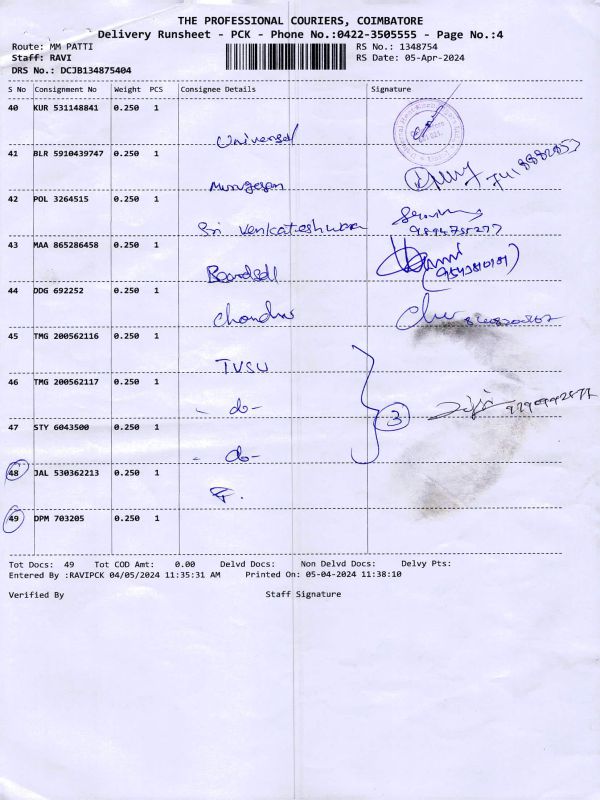 THE PROFESSIONAL COURIERS, COIMBATORE
Delivery Runsheet - PCK - Phone No.:0422-3505555 - Page No.:4
Route: MM PATTI RS No.: 1348754
Staff: RAVI RS Date: 05-Apr-2024
DRS No.: DCJB134875404
S No Consignment No Weight PCS Consignee Details Signature
40 KUR 531148841 0.250 1
Universal
41 BLR 5910439747 0.250 1
Murugesan
42 POL 3264515 0.250 1
Sri Venkateshwara
9894735277
43 MAA 865286458 0.250 1
Boardsell
44 DDG 692252 0.250 1
Chandra
45 TMG 200562116 0.250 1
TVSU
46 TMG 200562117 0.250 1
- do -
3
47 STY 6043500 0.250 1
- do -
48 JAL 530362213 0.250 1
49 DPM 703205 0.250 1
Tot Docs: 49 Tot COD Amt: 0.00 Delvd Docs: Non Delvd Docs: Delvy Pts:
Entered By :RAVIPCK 04/05/2024 11:35:31 AM Printed On: 05-04-2024 11:38:10
Verified By Staff Signature